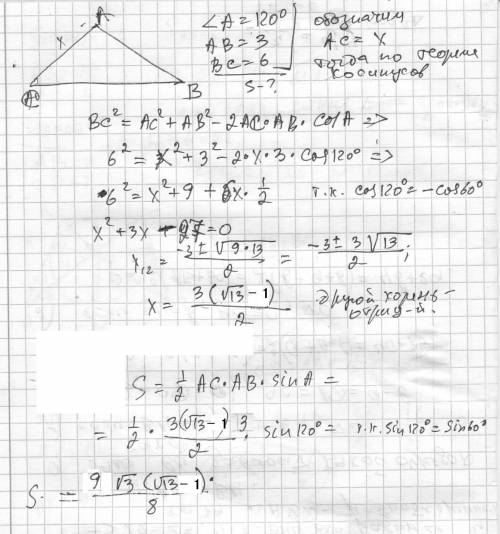 A
x
A
B
∠A = 120°
AB = 3
BC = 6
S - ?
обозначим
AC = X
тогда по теореме
косинусов
BC² = AC² + AB² - 2AC·AB·cosA =>
6² = x² + 3² - 2·x·3·cos120° =>
6² = x² + 9 + 6x·1/2 т.к. cos120° = -cos60°
x² + 3x - 27 = 0
x₁₂ = (-3 ± √(9·13))/2 = (-3 ± 3√13)/2;
x = 3(√13 - 1)/2 другой корень - отриц-й.
S = 1/2 AC·AB·sinA =
= 1/2 · 3(√13 - 1)/2 · 3 · sin120° = т.к. sin120° = sin60°
S = 9√3(√13 - 1)/8